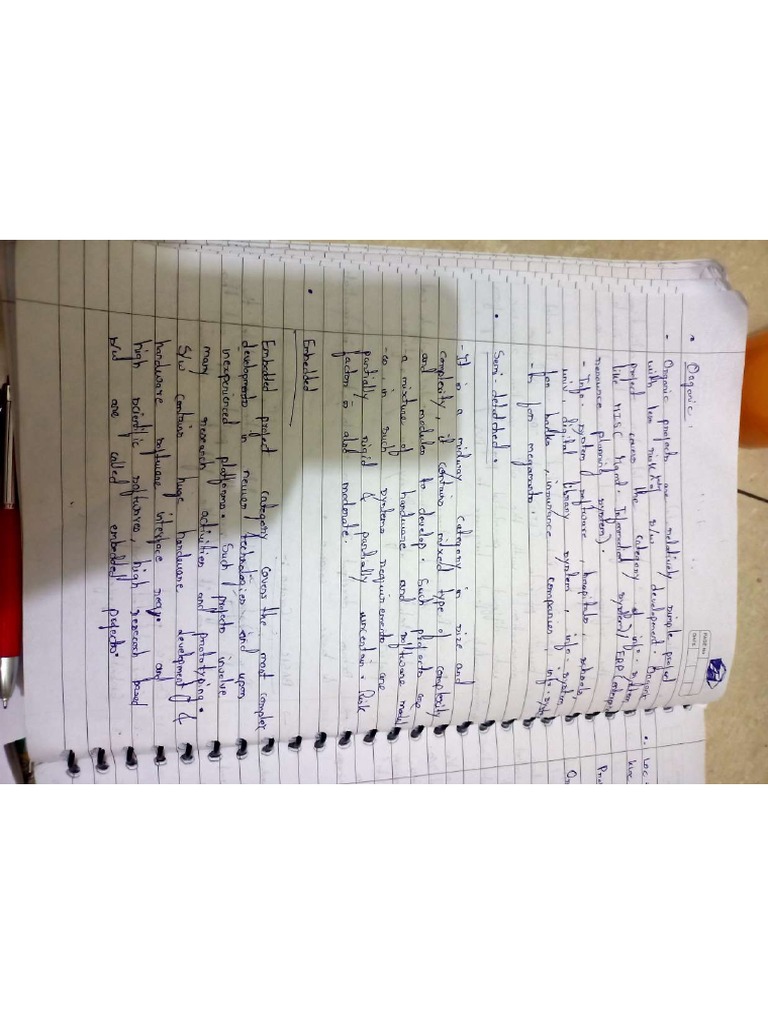 PAGE NO.
DATE
• Organic :
- Organic projects are relatively simple project
with less risk of s/w development. Organic
project covers the category of info. system
like MISC Mgmt. Information system), ERP (
resource planning system).
- Info. system / software, hospitals, schools,
univ, digital library system, info-system
for banks, insurance companies, info-sys
for megamarts.
• Semi-detatched.
- It is a midway category in size and
complexity, it contains mixed type of complexity
and modules to develop. Such projects are
a mixture of hardware and software
so in such systems requirements are
partially rigid & partially uncertain. Risk
factor is also moderate.
• Embedded
Embedded project category covers the most complex
developments in newer technologies and upon
inexperienced platforms. Such projects involve
many research activities and prototyping.
S/w contains huge hardware development &
hardware software interface reqr. and
high scientific softwares, high research based
s/w are called embedded projects.
Loc